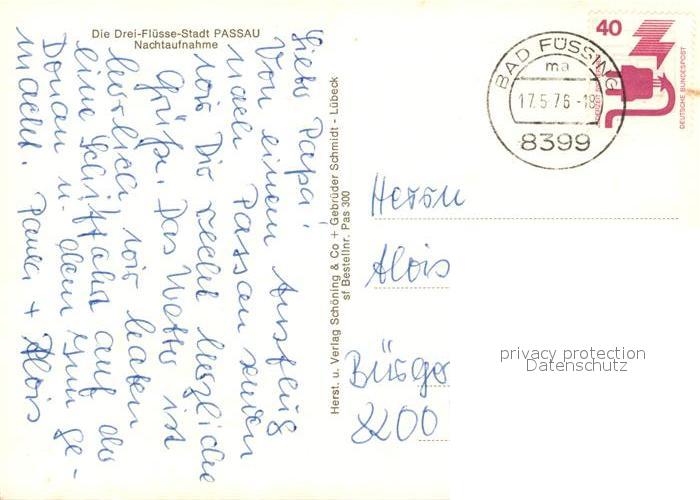 Die Drei-Flüsse-Stadt PASSAU
Nachtaufnahme
Lieber Papa!
Von einem Ausflug
nach Passau senden
wir Dir recht herzliche
Grüße. Das Wetter ist
herrlich wir haben
eine Schiffahrt auf der
Donau u. dem Inn ge-
macht. + Alois
Herst. u. Verlag Schöning & Co + Gebrüder Schmidt - Lübeck
sf Bestellnr. Pas 300
BAD FÜSSING
ma
17.5.76-18
8399
40
DEUTSCHE BUNDESPOST
Herrn
Alois
Bürger
8200
privacy protection
Datenschutz